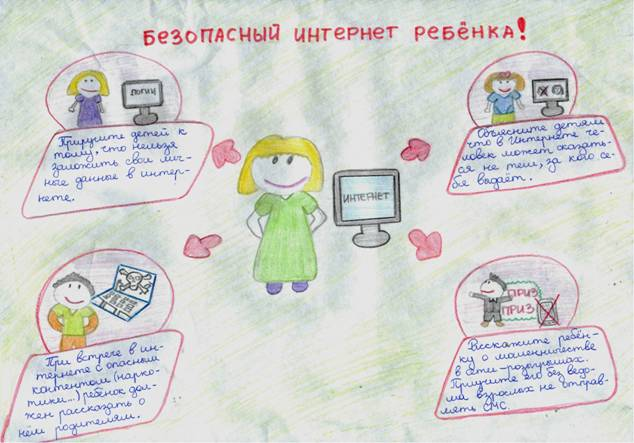 БЕЗОПАСНЫЙ ИНТЕРНЕТ РЕБЁНКА!
ЛОГИН
Приучите детей к
тому, что нельзя
заложить свои лич-
ные данные в интер-
нете.
Объясните детям
что в Интернете че-
ловек может оказать-
ся не тем, за кого се-
бя выдаёт.
ИНТЕРНЕТ
При встрече в ин-
тернете с опасным
контентом (нарко-
котики...) ребёнок дол-
жен рассказать о
нём родителям.
ПРИЗ
ПРИЗ
Расскажите ребён-
ку о мошенничестве
в сети - розыгрышах.
Приучите его без ведо-
ма взрослых не отправ-
лять СМС.